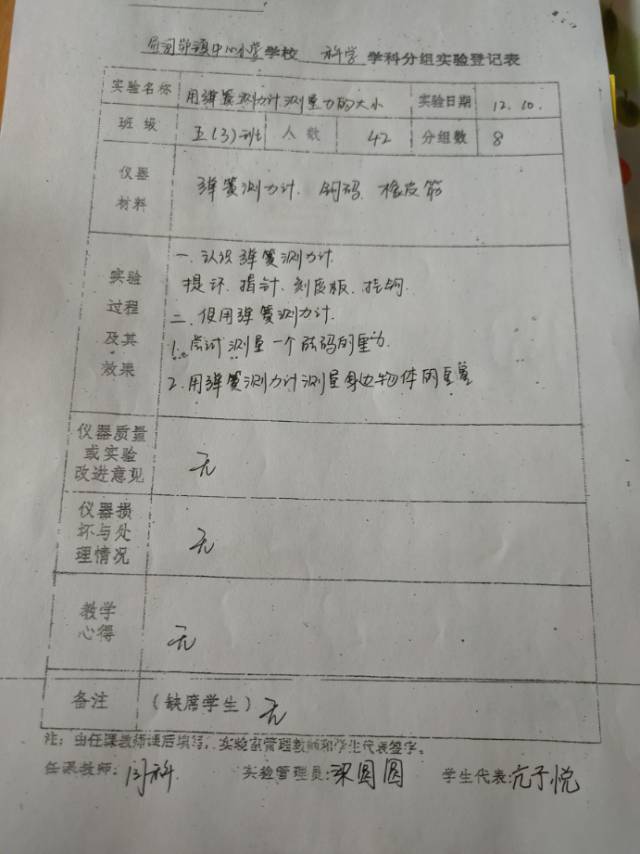 中心小学学校 科学 学科分组实验登记表
实验名称 用弹簧测力计测量力的大小 实验日期 12.10.
班级 五(3)班 人数 42 分组数 8
仪器材料 弹簧测力计、钩码、橡皮筋
实验过程及其效果
一、认识弹簧测力计.
提环、指针、刻度板、挂钩.
二、使用弹簧测力计.
1、尝试测量一个砝码的重力.
2.用弹簧测力计测量身边物体的重量
仪器质量或实验改进意见 无
仪器损坏与处理情况 无
教学心得 无
备注 (缺席学生) 无
注：由任课教师课后填写，实验室管理教师和学生代表签字。
任课教师: 实验管理员:梁圆圆 学生代表:亢子悦